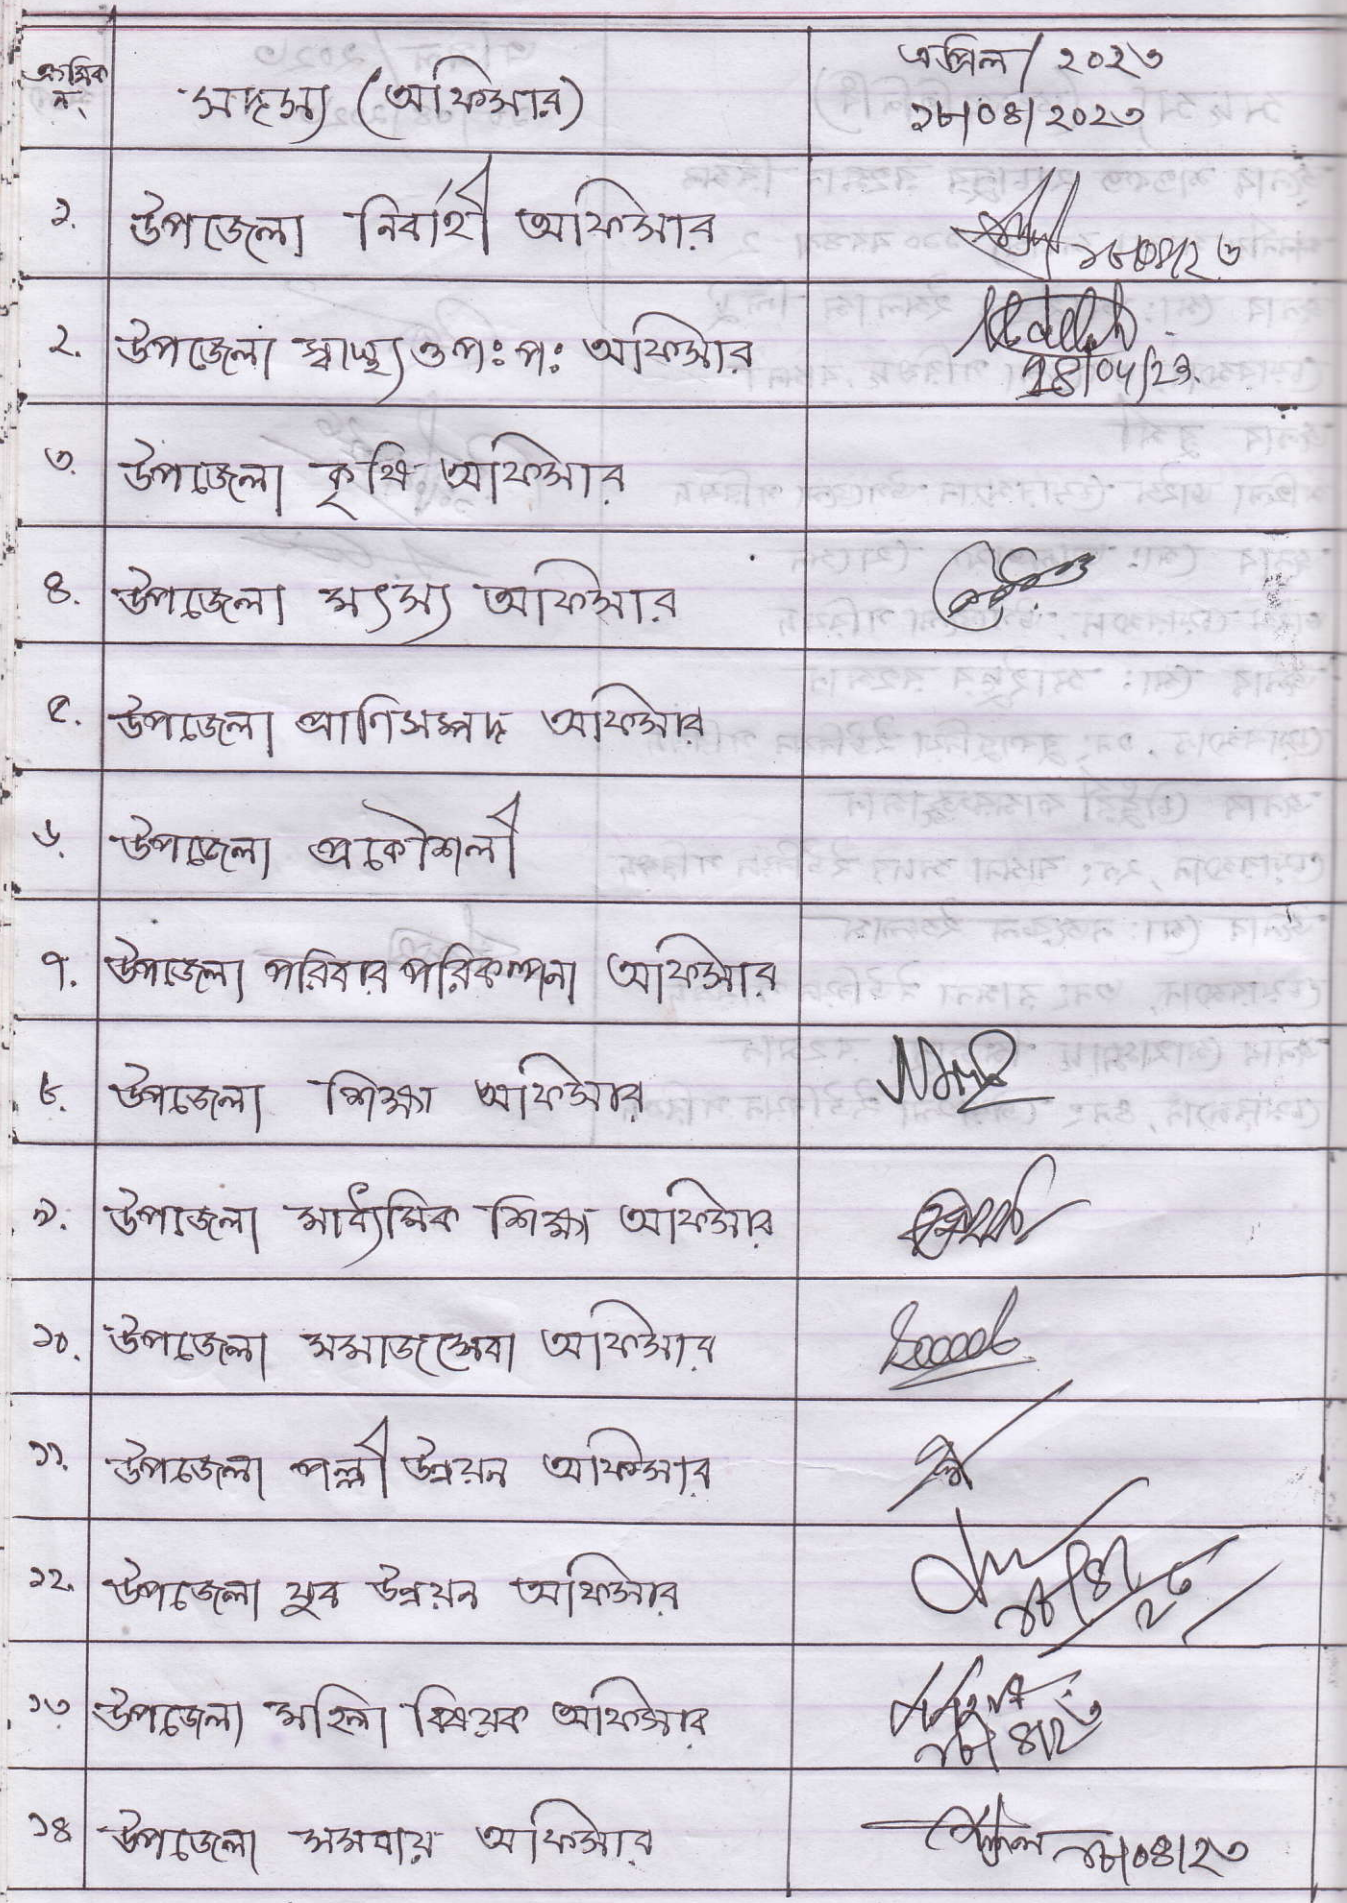 ক্রমিক নং সদস্য (অফিসার) এপ্রিল / ২০২৩
১৮/০৪/২০২৩
১. উপজেলা নির্বাহী অফিসার ১৮/০৪/২৩
২. উপজেলা স্বাস্থ্য ও পঃ পঃ অফিসার
18/04/23.
৩. উপজেলা কৃষি অফিসার
৪. উপজেলা মৎস্য অফিসার
৫. উপজেলা প্রাণিসম্পদ অফিসার
৬. উপজেলা প্রকৌশলী
৭. উপজেলা পরিবার পরিকল্পনা অফিসার
৮. উপজেলা শিক্ষা অফিসার
৯. উপজেলা মাধ্যমিক শিক্ষা অফিসার
১০. উপজেলা সমাজসেবা অফিসার
১১. উপজেলা পল্লী উন্নয়ন অফিসার
১২. উপজেলা যুব উন্নয়ন অফিসার ১৮/৪/২৩
১৩ উপজেলা মহিলা বিষয়ক অফিসার ১৮/৪/২৩
১৪ উপজেলা সমবায় অফিসার ১৮/০৪/২৩